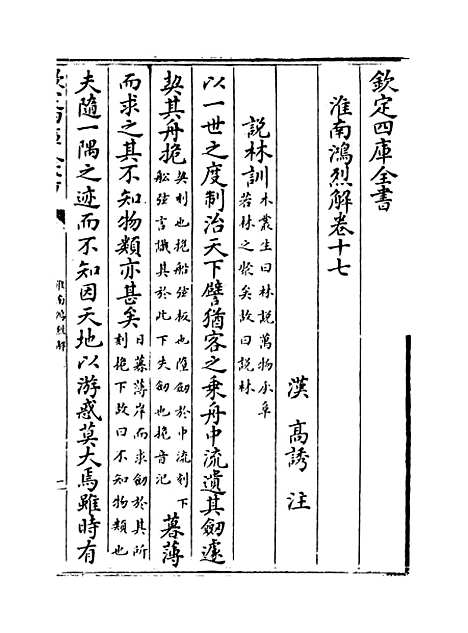 欽定四庫全書
淮南鴻烈解卷十七
漢 高誘 注
說林訓 木叢生曰林說萬物承阜
若林之聚矣故曰說林
以一世之度制治天下譬猶客之乘舟中流遺其劒遽
契其舟桅 契刻也桅船弦板也墮劒於中流刻下
船弦言識其於此下失劒也桅音氾 暮薄
而求之其不知物類亦甚矣 日暮薄岸而求劒於其所
刻桅下故曰不知物類也
夫隨一隅之迹而不知因天地以游惑莫大焉雖時有
淮南鴻烈解